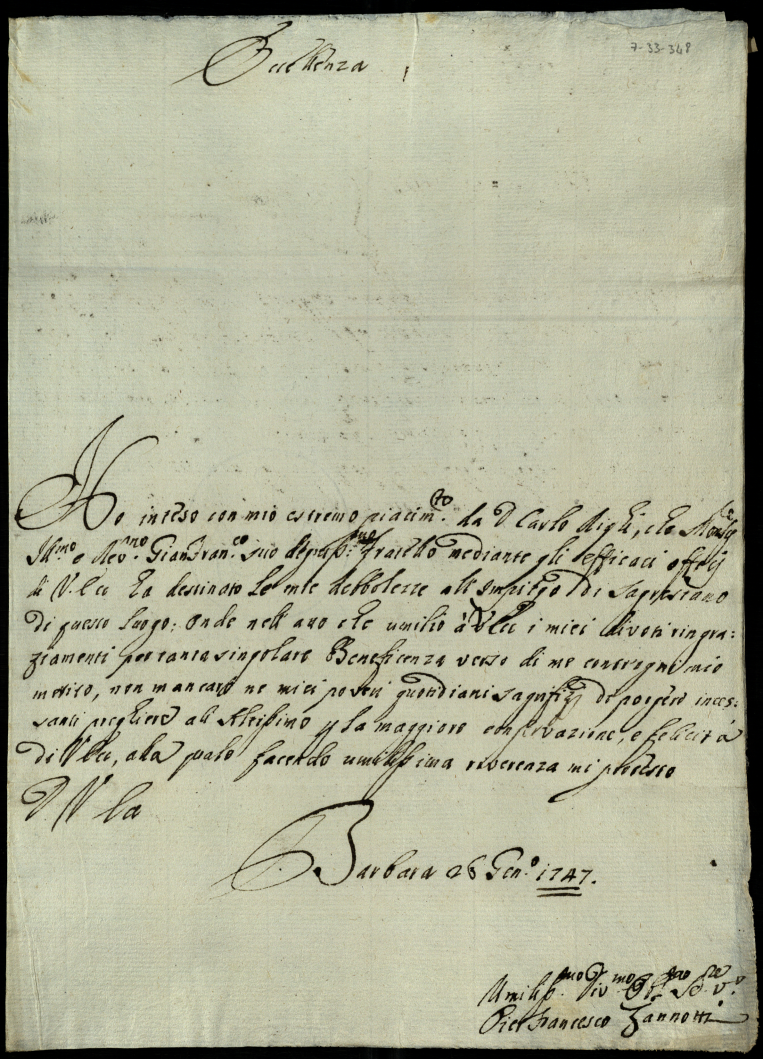 7-33-348
Eccellenza
Ho inteso con mio estremo piacim.to da D Carlo Righi, che Monsig.r
Ill.mo e Rev.mo Gian Fran.co suo degniss.mo Fratello mediante gli efficaci officij
di V. Ecc ha destinato le mie debbolezze all'Impiego di Sagrestano
di questo luogo; onde nell'atto che umilio à V Ecc i miei divoti ringra:
ziamenti per tanta singolare Beneficenza verso di me contr'ogni mio
merito, non mancarò ne miei poveri quotidiani sagrifizj di porgere inces:
santi preghiere all'Altissimo p la maggiore conservazione, e felicità
di V Ecc, alla quale facendo umilissima riverenza mi protesto
D V Ecza
Barbara 26 Gen.o 1747.
Umiliss.mo Div.mo Obl.mo Se.re v.o
Pier Francesco Zannotti